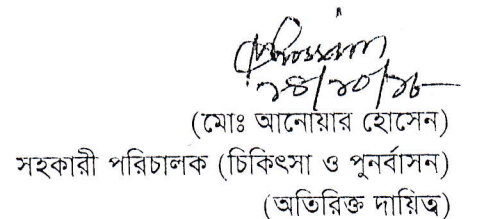 (মোঃ আনোয়ার হোসেন)
সহকারী পরিচালক (চিকিৎসা ও পুনর্বাসন)
(অতিরিক্ত দায়িত্ব)